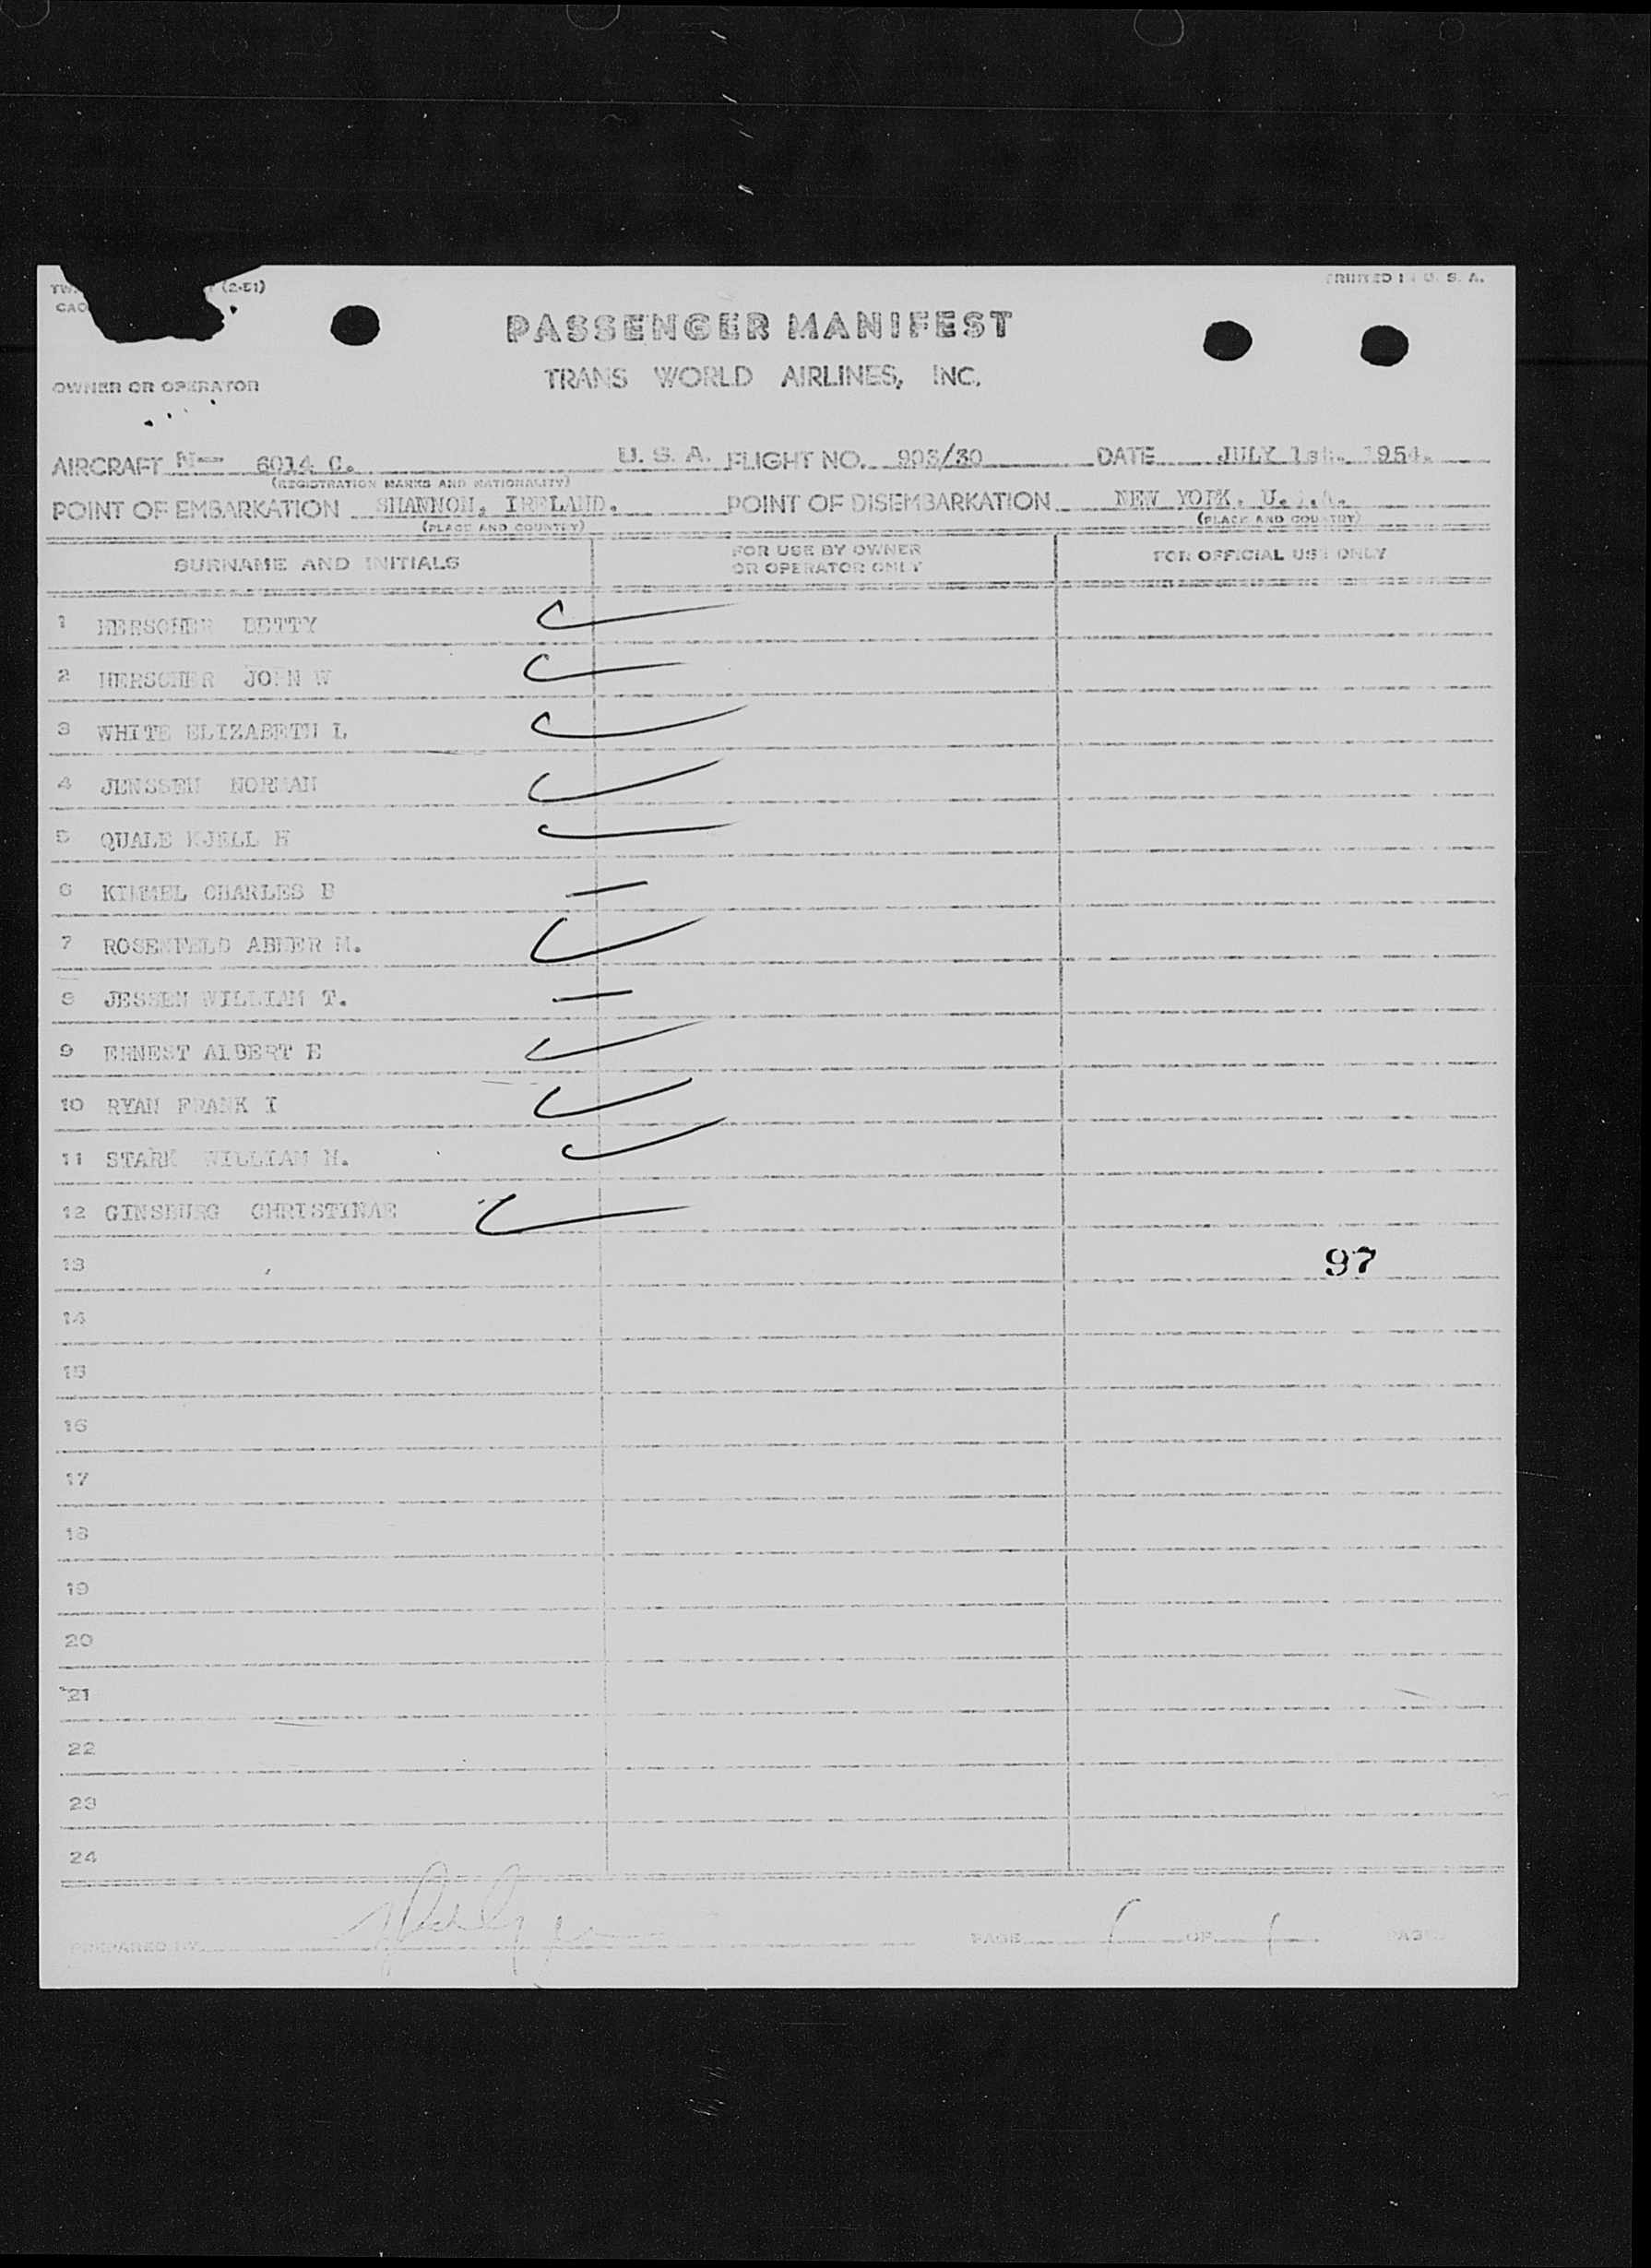 (2-51)
PRINTED IN U. S. A.
PASSENGER MANIFEST
TRANS WORLD AIRLINES, INC.
OWNER OR OPERATOR
AIRCRAFT N— 6014 C. U. S. A. FLIGHT NO. 903/30 DATE JULY 1st. 1954.
(REGISTRATION MARKS AND NATIONALITY)
POINT OF EMBARKATION SHANNON, IRELAND. POINT OF DISEMBARKATION NEW YORK. U.S.A.
(PLACE AND COUNTRY) (PLACE AND COUNTRY)
SURNAME AND INITIALS FOR USE BY OWNER OR OPERATOR ONLY FOR OFFICIAL USE ONLY
1 HERSCHER BETTY
2 HERSCHER JOHN W
3 WHITE ELIZABETH L
4 JENSSEN NORMAN
5 QUALE KJELL H
6 KIMMEL CHARLES B
7 ROSENFELD ABNER M.
8 JESSEN WILLIAM T.
9 ERNEST ALBERT E
10 RYAN FRANK I
11 STARK WILLIAM H.
12 GINSBURG CHRISTINAE
13 97
14
15
16
17
18
19
20
21
22
23
24
PREPARED BY PAGE 1 OF 1 PAGES